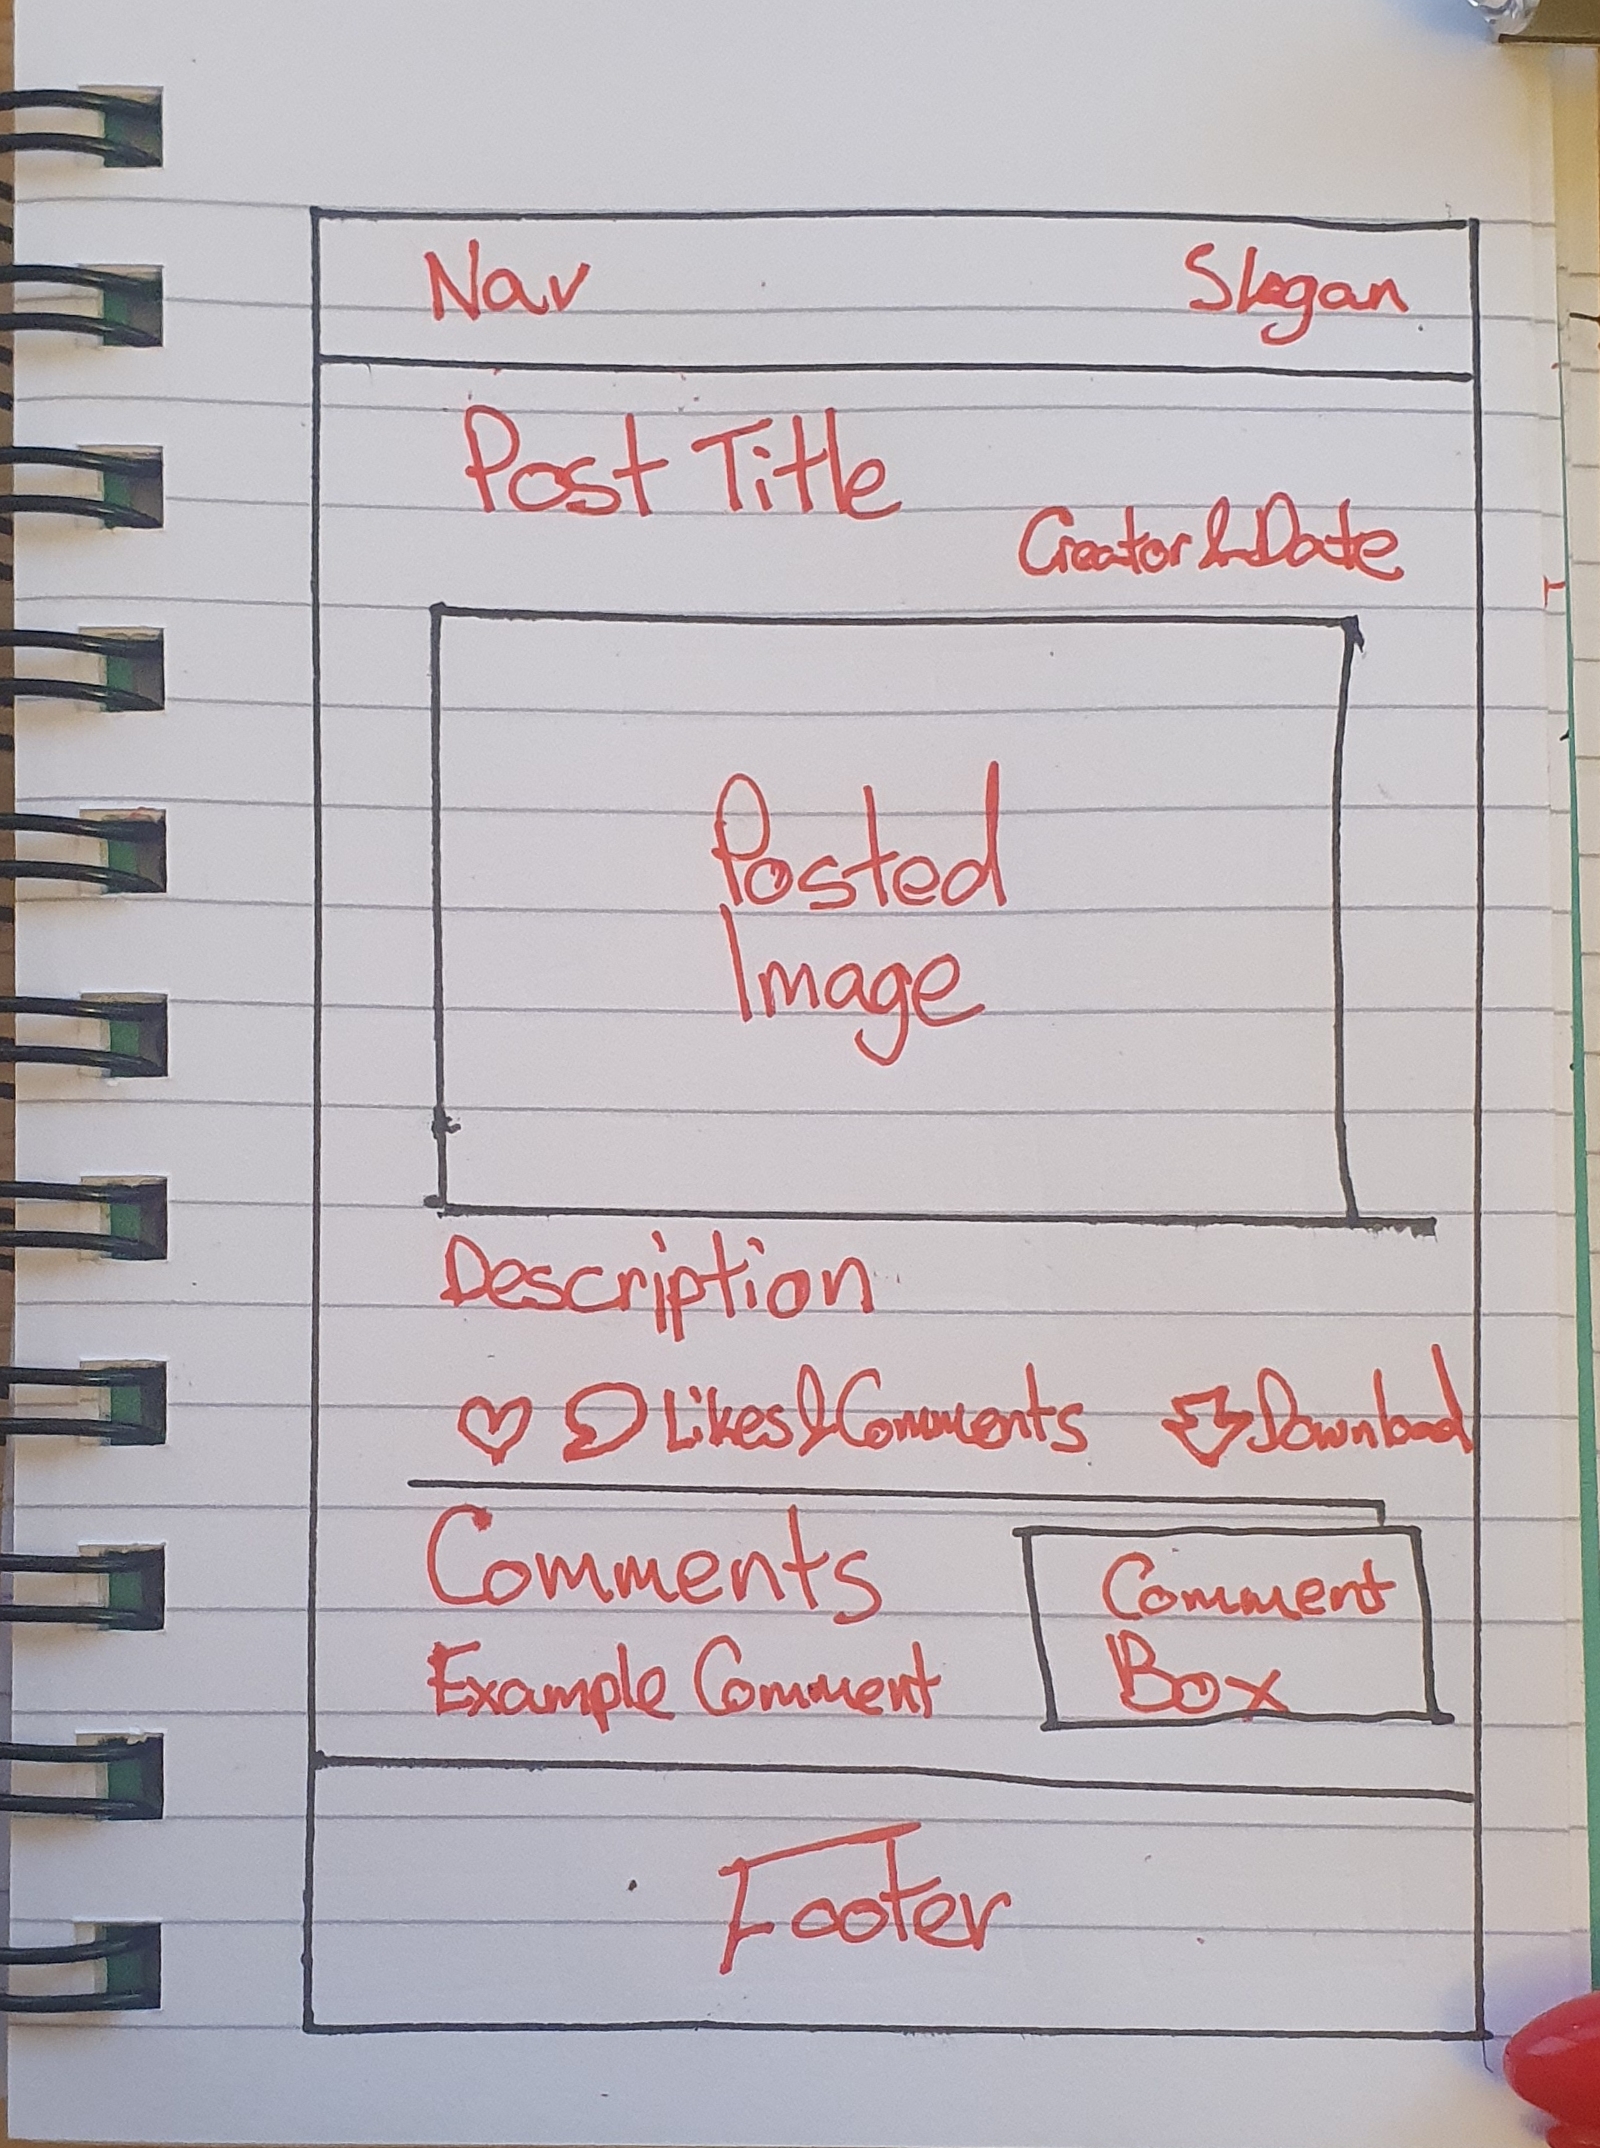 Nav Slogan
Post Title
Creator & Date
Posted
Image
Description
Likes & Comments Download
Comments
Example Comment
Comment
Box
Footer